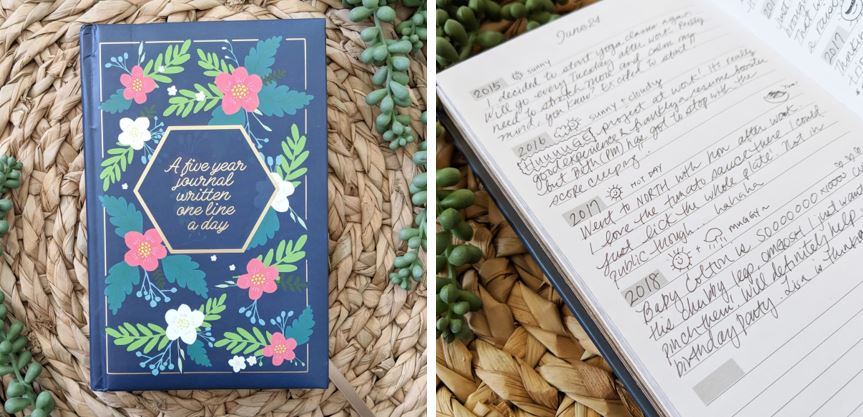 A five year
journal
written
one line
a day
June 21
2015 sunny
I decided to start yoga classes again.
Will go every Tuesday after work. Really
need to stretch more and calm my
mind, you know. Excited to start!
2016 sunny + cloudy
project at work! It's really
good experience & frankly a resume booster
but BOTH (PM) has got to stop with the
scope creeping
2017 HOT DAY
Went to NORTH with hon after work.
I love the tomato sauce there I could
just lick the whole plate. Not in
public though... hahaha
2018 + MUGGY~
Baby Colton is SO
the chunky legs omgosh I just wanna
pinch them! Will definitely help
birthday party. Lisa is
2017